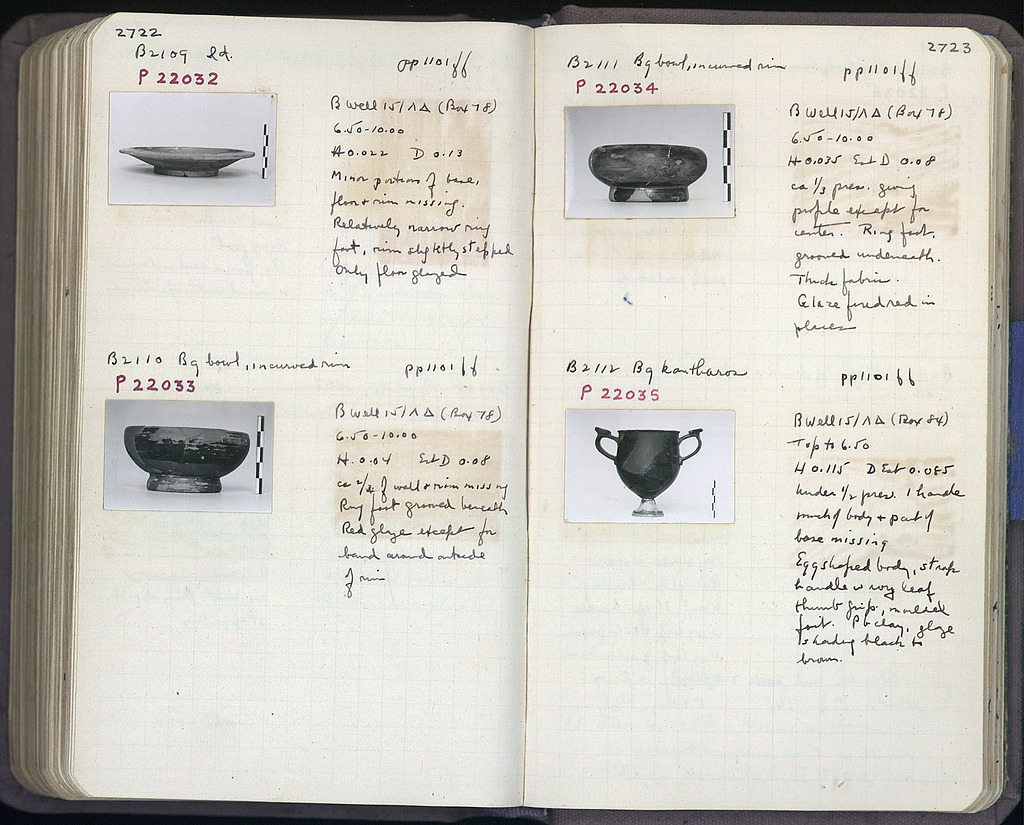 2722
B2109 lid.
pp1101ff
P 22032
B Well 15/ΛΔ (Box 78)
6.50-10.00
H 0.022 D 0.13
Minor portions of base,
floor + rim missing.
Relatively narrow ring
foot, rim slightly stepped
Only floor glazed
B2110 Bg bowl, incurved rim
pp1101ff
P 22033
B Well 15/ΛΔ (Box 78)
6.50-10.00
H. 0.04 Est D 0.08
ca 1/2 of wall + rim missing
Ring foot grooved beneath
Red glaze except for
band around outside
of rim
2723
B2111 Bg bowl, incurved rim
pp1101ff
P 22034
B Well 15/ΛΔ (Box 78)
6.50-10.00
H 0.035 Est D 0.08
ca 1/3 pres. giving
profile except for
center. Ring foot,
grooved underneath.
Thick fabric.
Glaze fired red in
places
B2112 Bg kantharos
pp1101ff
P 22035
B Well 15/ΛΔ (Box 84)
Top to 6.50
H 0.115 D Est 0.085
Under 1/2 pres. 1 handle
much of body + part of
base missing
Egg shaped body, strap
handle w ivy leaf
thumb grip, molded
foot. Pb clay, glaze
shading black to
brown.